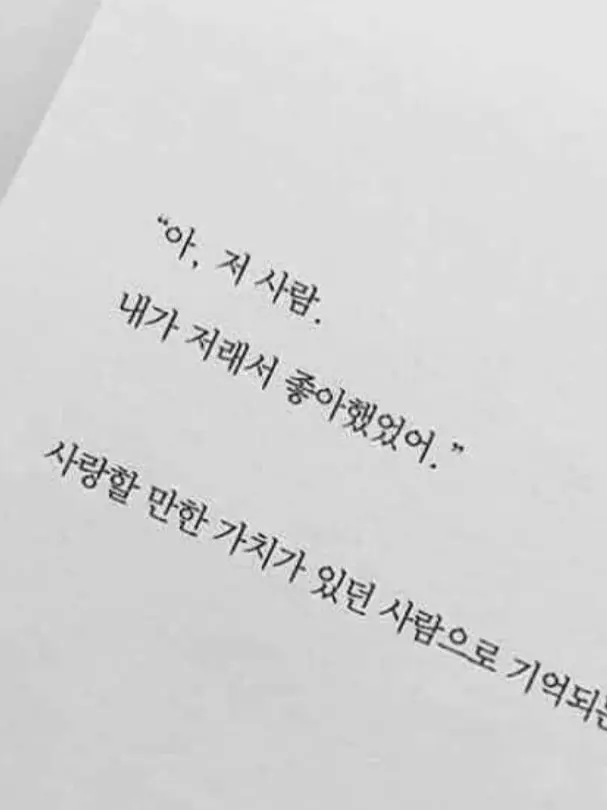 “아, 저 사람.
내가 저래서 좋아했었어.”
사랑할 만한 가치가 있던 사람으로 기억되는